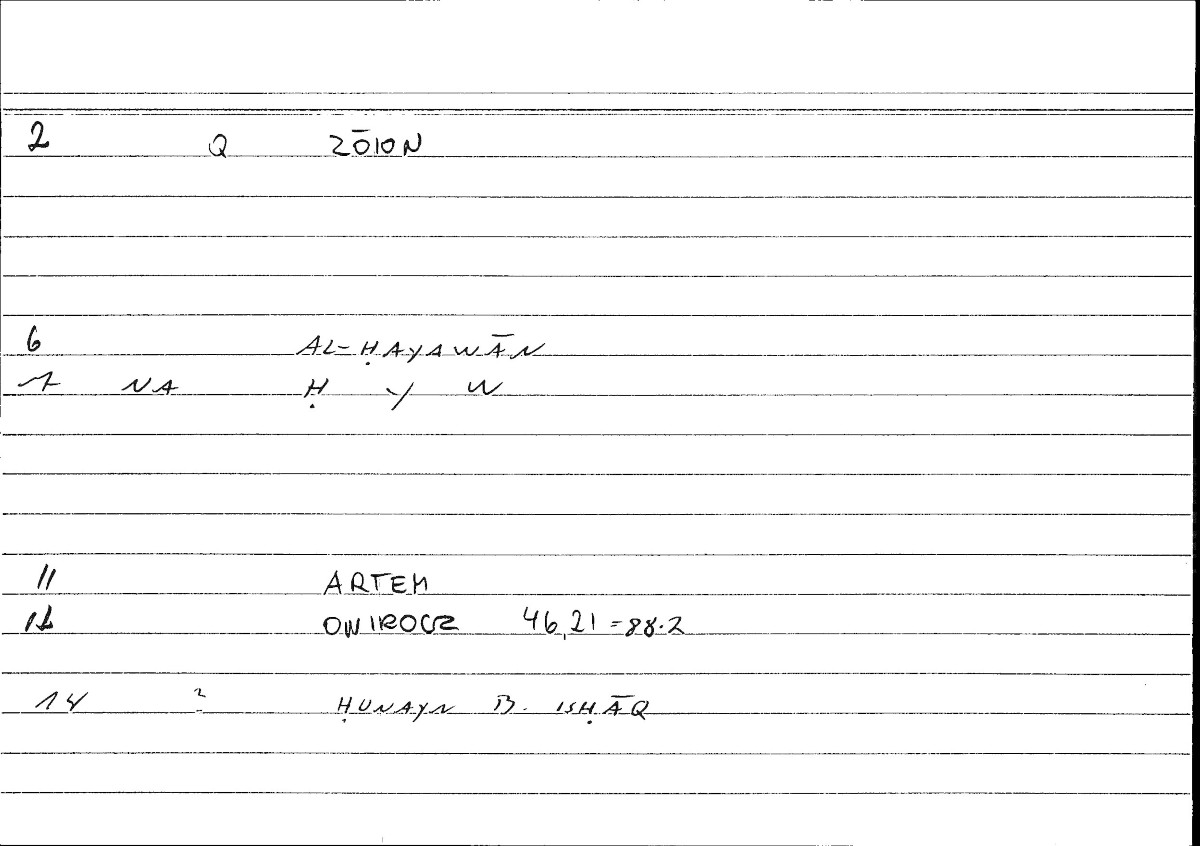 2 Q ZŌION
6 AL-ḤAYAWĀN
7 NA Ḥ Y W
11 ARTEM
12 46,21=88.2
14 2 ḤUNAYN B. ISḤĀQ